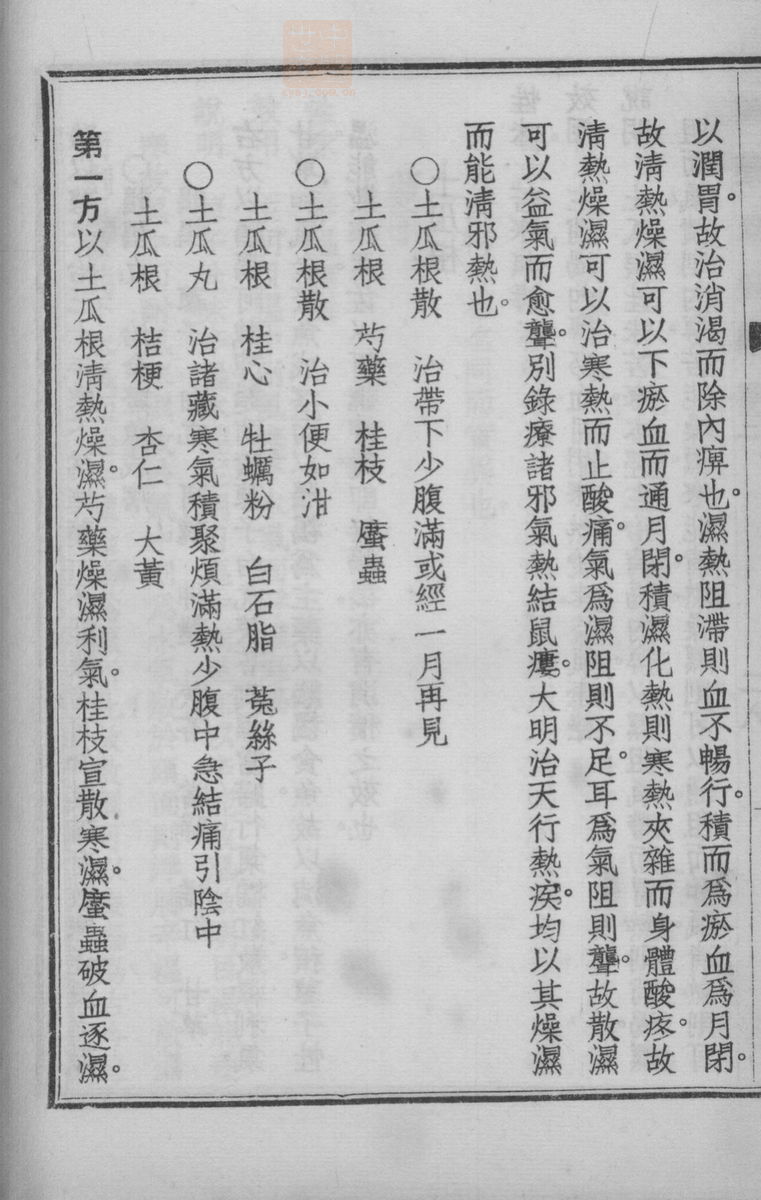 以潤胃。故治消渴而除內痹也。濕熱阻滯則血不暢行。積而爲瘀血爲月閉。
故清熱燥濕可以下瘀血而通月閉。積濕化熱則寒熱夾雜而身體酸疼。故
清熱燥濕可以治寒熱而止酸痛。氣爲濕阻則不足。耳爲氣阻則聾。故散濕
可以益氣而愈聾。別錄療諸邪氣熱結鼠瘻。大明治天行熱疾。均以其燥濕
而能清邪熱也。
〇土瓜根散　治帶下少腹滿或經一月再見
土瓜根　芍藥　桂枝　䗪蟲
〇土瓜根散　治小便如泔
土瓜根　桂心　牡蠣粉　白石脂　菟絲子
〇土瓜丸　治諸藏寒氣積聚煩滿熱少腹中急結痛引陰中
土瓜根　桔梗　杏仁　大黃
第一方以土瓜根清熱燥濕。芍藥燥濕利氣。桂枝宣散寒濕。䗪蟲破血逐濕。